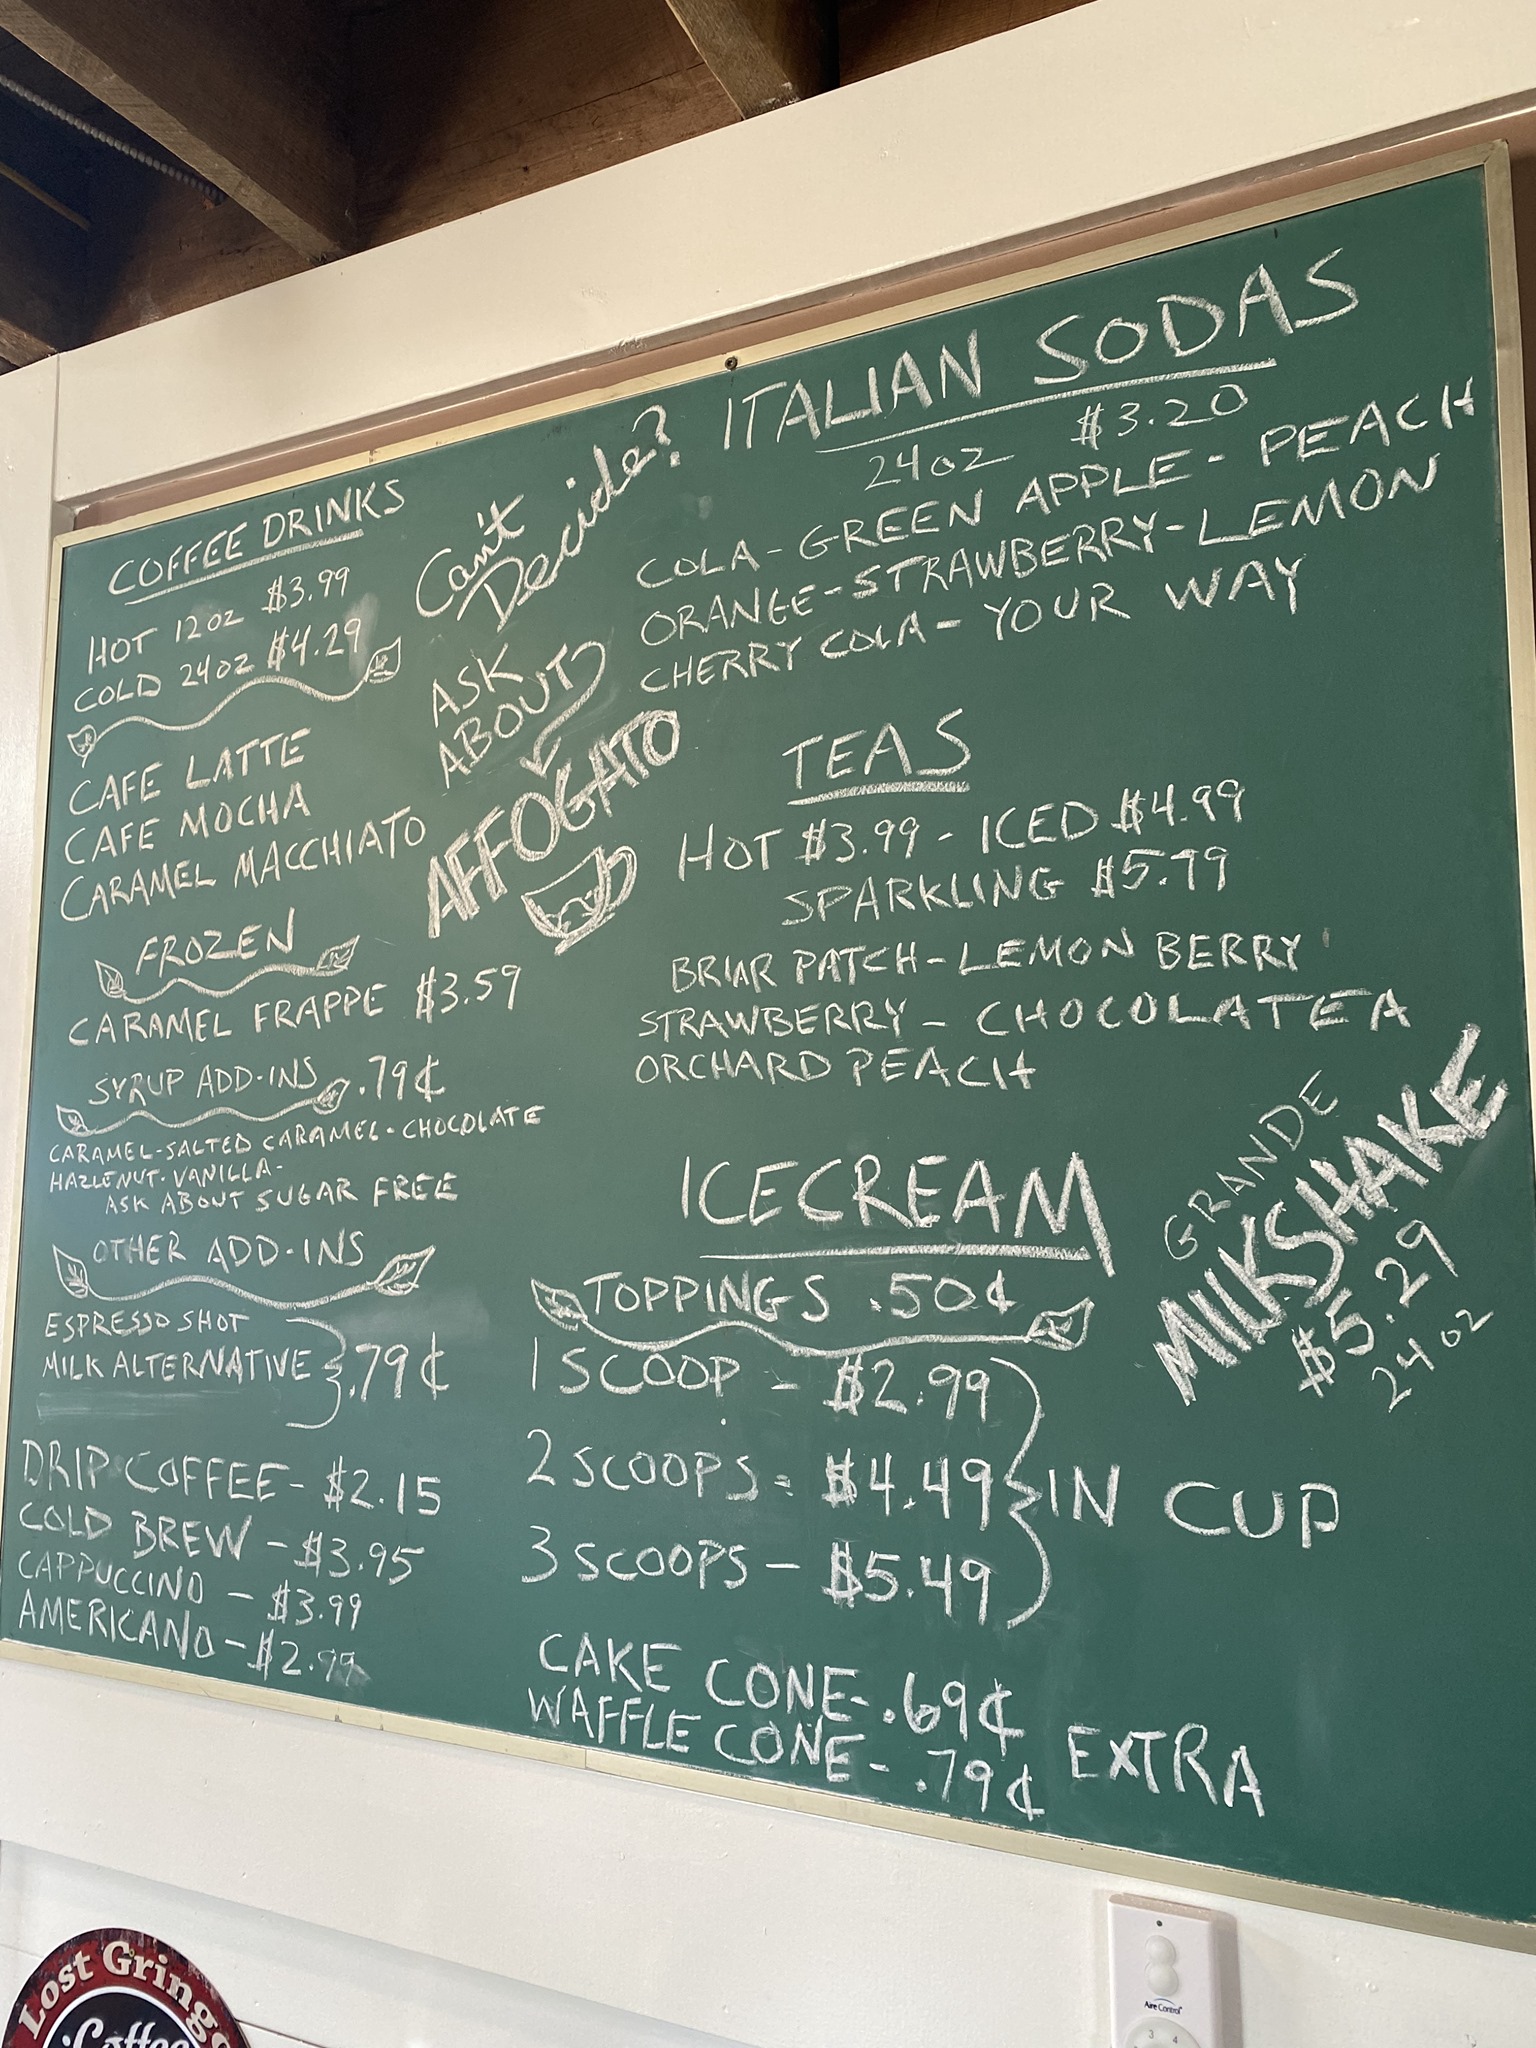 COFFEE DRINKS
HOT 12oz $3.99
COLD 24oz $4.29
CAFE LATTE
CAFE MOCHA
CARAMEL MACCHIATO
FROZEN
CARAMEL FRAPPE $3.59
SYRUP ADD-INS .79¢
CARAMEL-SALTED CARAMEL-CHOCOLATE
HAZLENUT-VANILLA-
ASK ABOUT SUGAR FREE
OTHER ADD-INS
ESPRESSO SHOT
MILK ALTERNATIVE } .79¢
DRIP COFFEE- $2.15
COLD BREW - $3.95
CAPPUCCINO - $3.99
AMERICANO - $2.99
Can't
Decide?
ASK
ABOUT
AFFOGATO
ITALIAN SODAS
24oz $3.20
COLA - GREEN APPLE - PEACH
ORANGE - STRAWBERRY - LEMON
CHERRY COLA - YOUR WAY
TEAS
HOT $3.99 - ICED $4.99
SPARKLING $5.99
BRIAR PATCH - LEMON BERRY
STRAWBERRY - CHOCOLATEA
ORCHARD PEACH
ICECREAM
TOPPINGS .50¢
1 SCOOP - $2.99
2 SCOOPS = $4.49 } IN CUP
3 SCOOPS - $5.49
CAKE CONE- .69¢
WAFFLE CONE - .79¢ EXTRA
GRANDE
MILKSHAKE
$5.29
24oz
Lost Gringo
Coffee
Aire Control
3 4